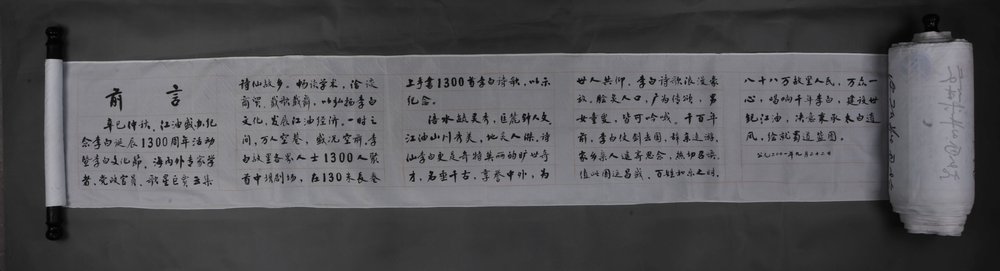 前言
辛巳仲秋、江油盛办纪
念李白诞辰1300周年活动
暨李白文化节、海内外专家学
者、党政官员、歌星巨贾云集
诗仙故乡。畅谈学术，洽谈
商贸，载歌载舞，以弘扬李白
文化，发展江油经济。一时之
间，万人空巷，盛况空前，李
白故里各界人士1300人聚
首中坝剧场，在130米长卷
上手书1300首李白诗歌，以示
纪念。
涪水毓灵秀，匡院钟人文，
江油山川秀美，地灵人杰。诗
仙李白更是奇特美丽的旷世奇
才，名垂千古，享誉中外，为
世人共仰，李白诗歌浪漫豪
放。脍炙人口，广为传颂，男
女童叟，皆可吟哦，千百年
前，李白仗剑去国，辞亲远游，
家乡亲人遥寄思念，热切召唤，
值此国运昌盛、百姓和乐之时，
八十八万故里人民，万众一
心，唱响千年李白，建设世
纪江油，决意秉承太白遗
风，绘就蜀道蓝图。
公元2001年九月二十二日